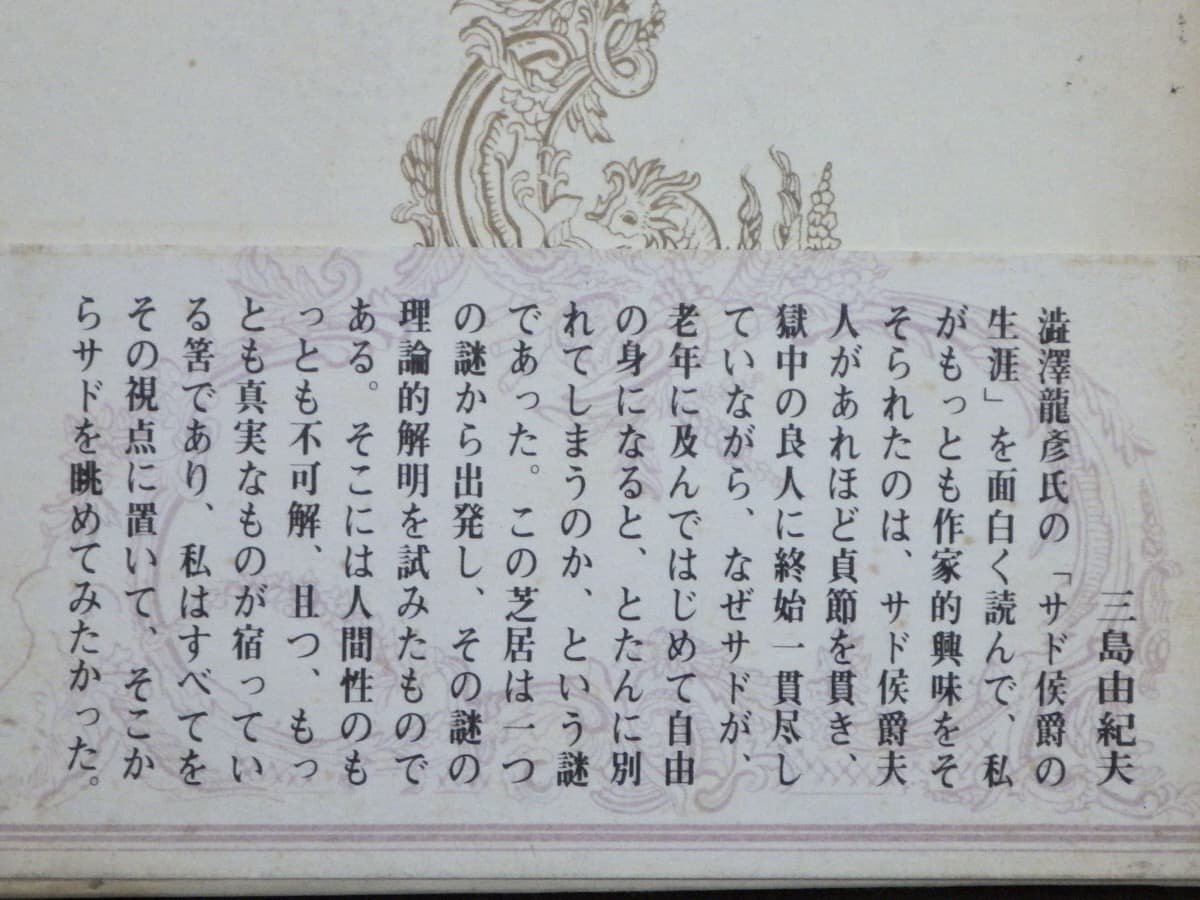 三島由紀夫
澁澤龍彥氏の「サド侯爵の
生涯」を面白く読んで、私
がもっとも作家的興味をそ
そられたのは、サド侯爵夫
人があれほど貞節を貫き、
獄中の良人に終始一貫尽し
ていながら、なぜサドが、
老年に及んではじめて自由
の身になると、とたんに別
れてしまうのか、という謎
であった。この芝居は一つ
の謎から出発し、その謎の
理論的解明を試みたもので
ある。そこには人間性のも
っとも不可解、且つ、もっ
とも真実なものが宿ってい
る筈であり、私はすべてを
その視点に置いて、そこか
らサドを眺めてみたかった。